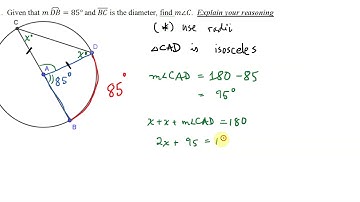 . Given that m DB = 85° and BC is the diameter, find m∠C. Explain your reasoning
(*) use radii
△CAD is isosceles
m∠CAD = 180 - 85
= 95°
x + x + m∠CAD = 180
2x + 95 = 1
C
D
x°
x°
A
1)85°
85°
B